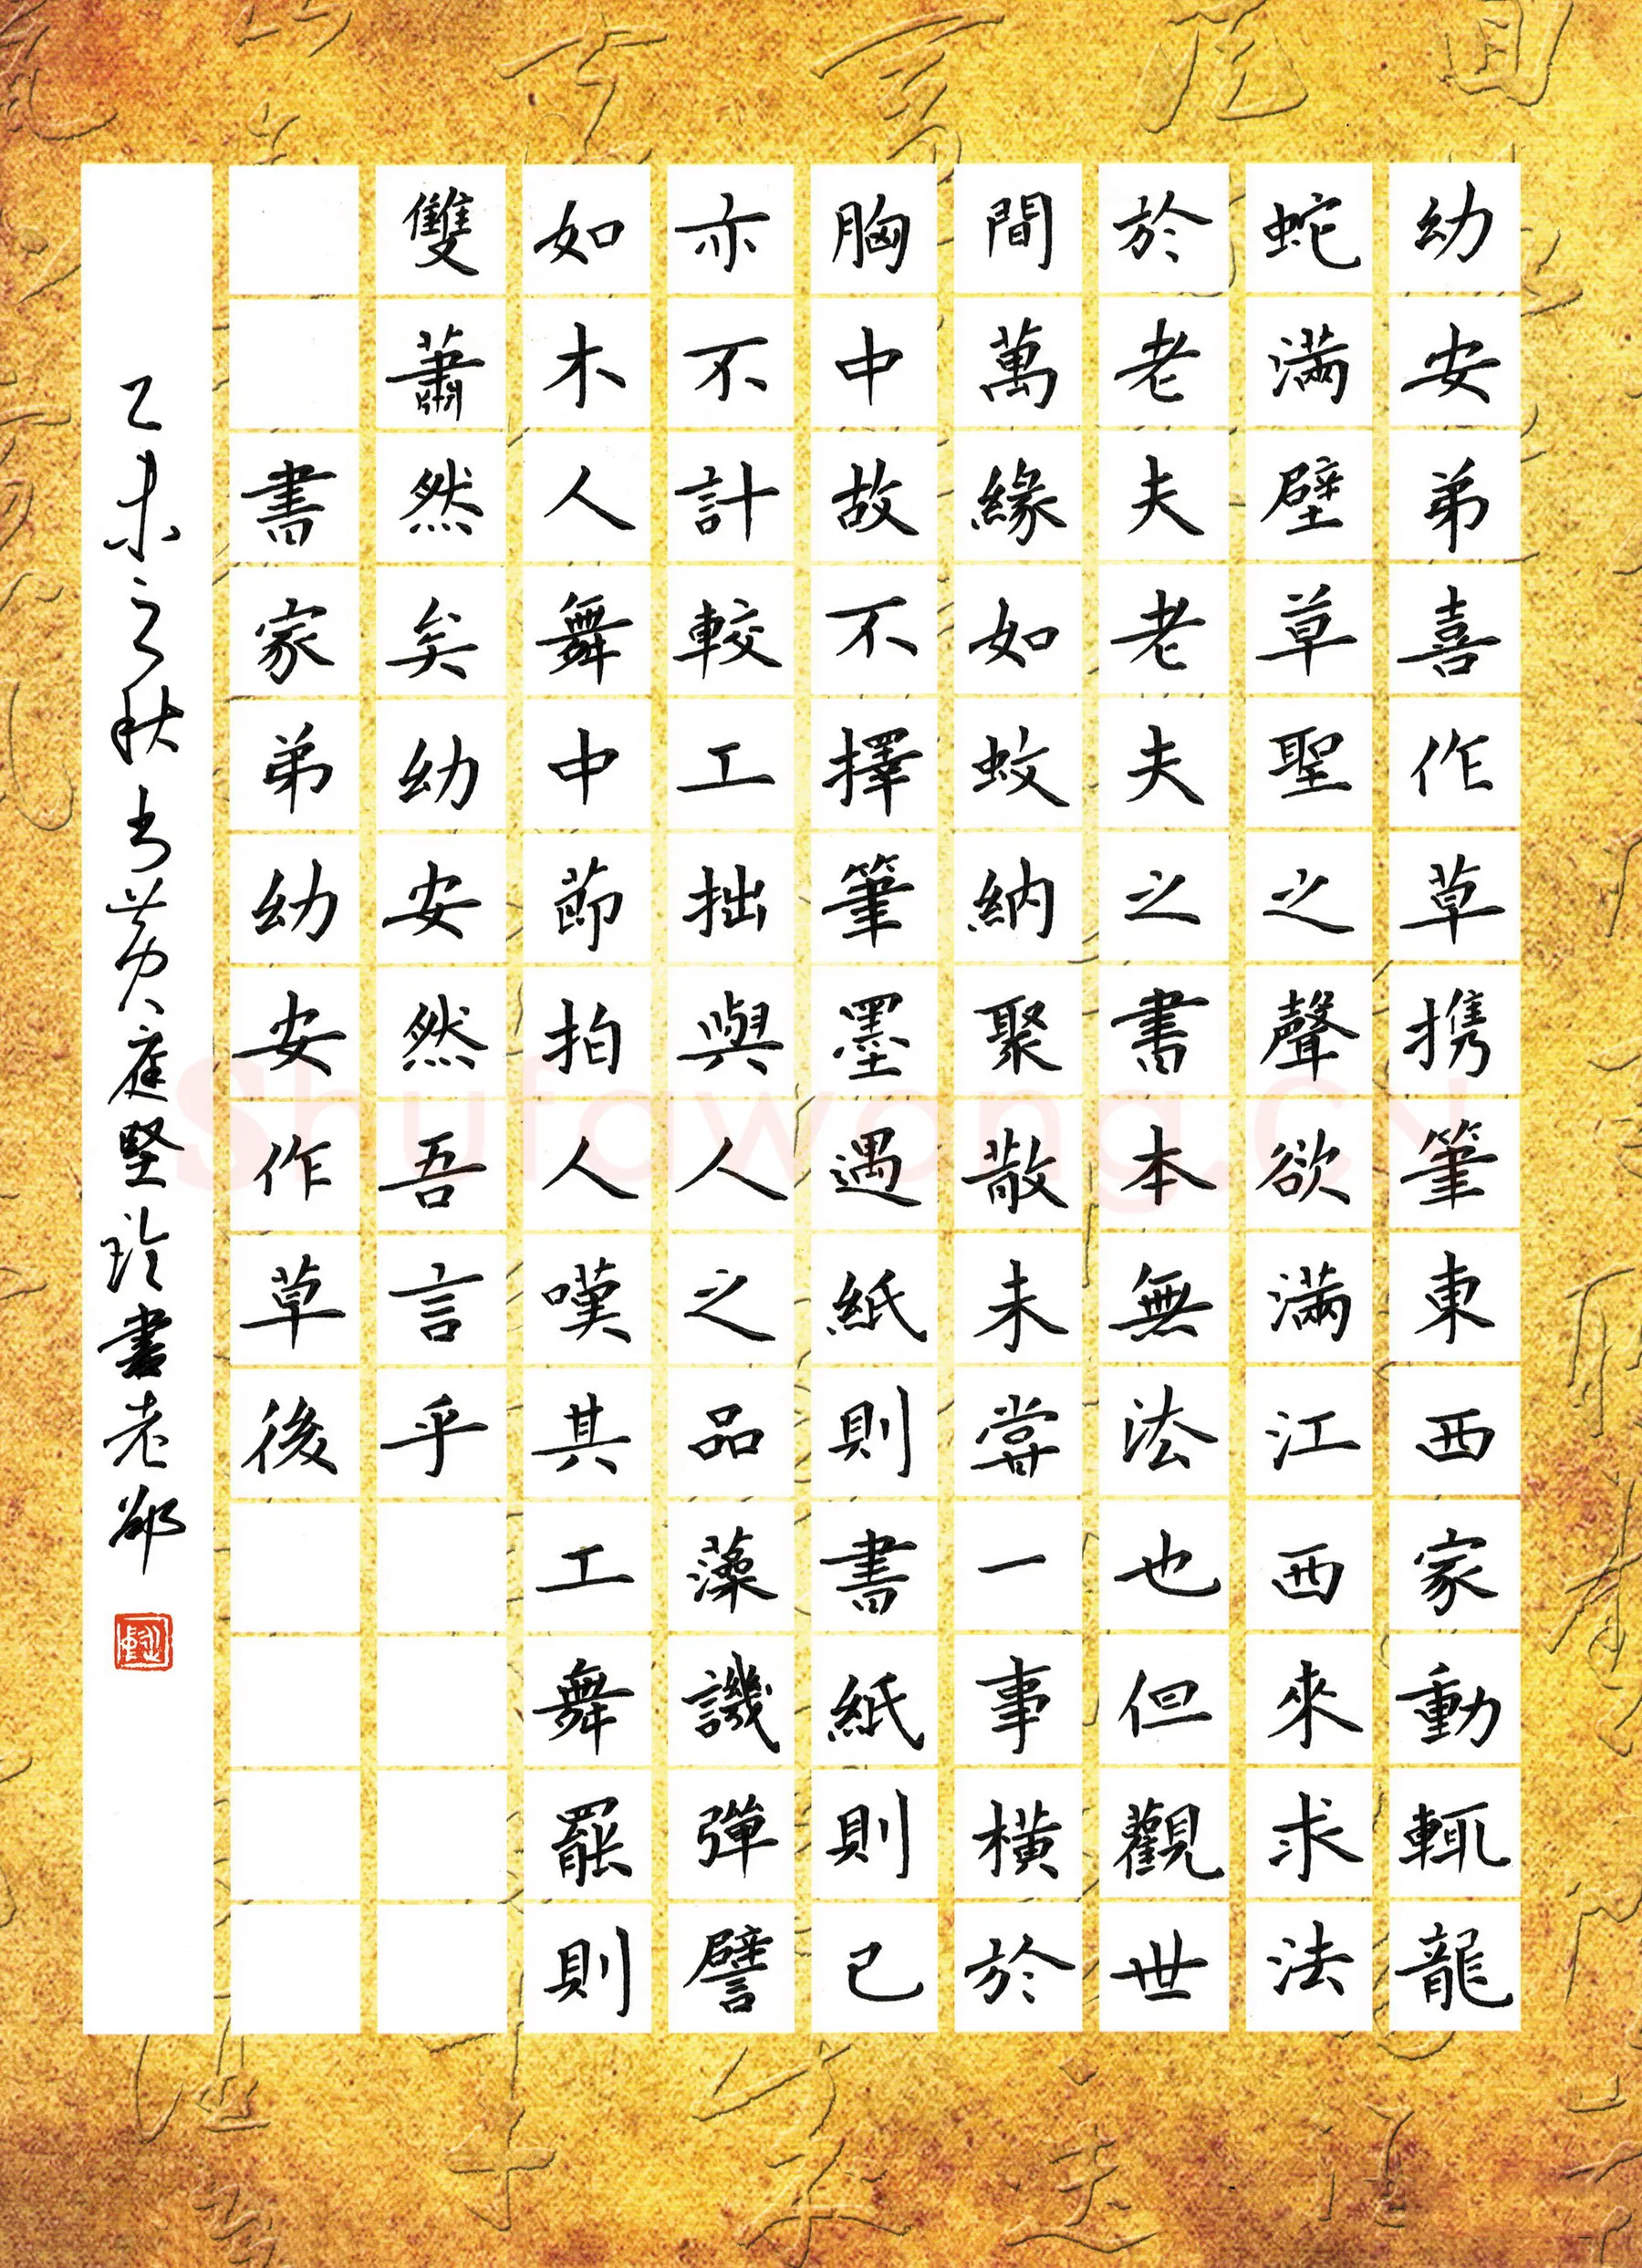 幼安弟喜作草携筆東西家動輒龍
蛇滿壁草聖之聲欲滿江西來求法
於老夫老夫之書本無法也但觀世
間萬緣如蚊蚋聚散未嘗一事橫於
胸中故不擇筆墨遇紙則書紙則已
亦不計較工拙與人之品藻譏彈譬
如木人舞中節拍人嘆其工舞罷則
雙蕭然矣幼安然吾言乎
書家弟幼安作草後
乙未之秋书黄庭堅珍書老鄒
Shufawang.CN